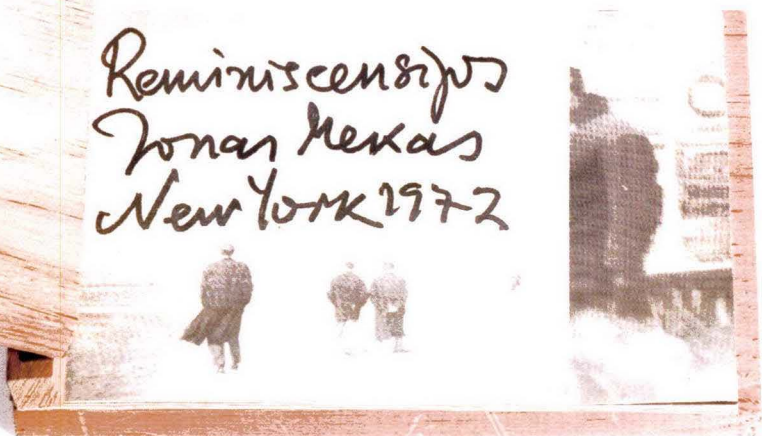 Reminiscensijos
Jonas Mekas
New York 1972